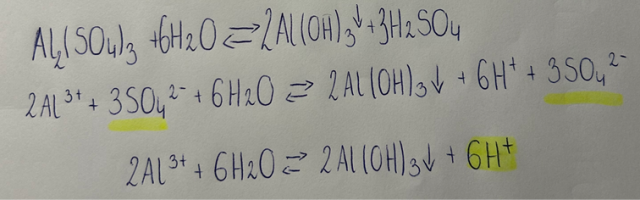 Al₂(SO₄)₃ + 6H₂O ⇌ 2Al(OH)₃↓ + 3H₂SO₄
2Al³⁺ + 3SO₄²⁻ + 6H₂O ⇌ 2Al(OH)₃↓ + 6H⁺ + 3SO₄²⁻
2Al³⁺ + 6H₂O ⇌ 2Al(OH)₃↓ + 6H⁺